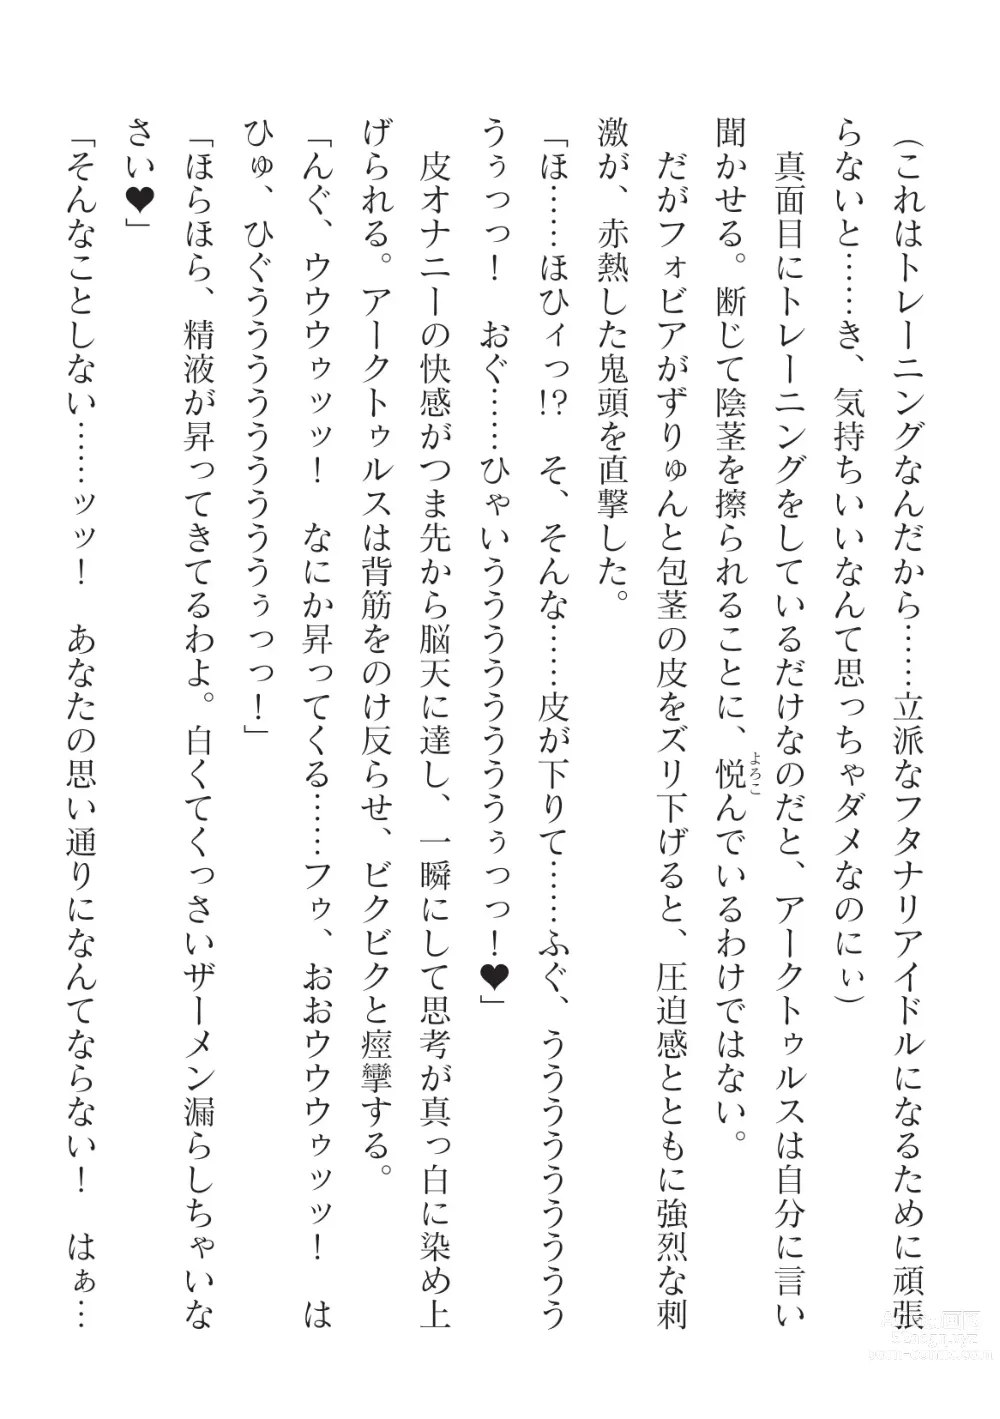 （これはトレーニングなんだから……立派なフタナリアイドルになるために頑張
らないと……き、気持ちいいなんて思っちゃダメなのにぃ）
　真面目にトレーニングをしているだけなのだと、アークトゥルスは自分に言い
聞かせる。断じて陰茎を擦られることに、悦んでいるわけではない。
よろこ
　だがフォビアがずりゅんと包茎の皮をズリ下げると、圧迫感とともに強烈な刺
激が、赤熱した鬼頭を直撃した。
「ほ……ほひィっ!?　そ、そんな……皮が下りて……ふぐ、うううううううう
うぅっっ！　おぐ……ひゃいうううううううぅっっ！♥」
　皮オナニーの快感がつま先から脳天に達し、一瞬にして思考が真っ白に染め上
げられる。アークトゥルスは背筋をのけ反らせ、ビクビクと痙攣する。
「んぐ、ウウウゥッッ！　なにか昇ってくる……フゥ、おおウウウゥッッ！　は
ひゅ、ひぐううううううううぅっっ！」
「ほらほら、精液が昇ってきてるわよ。白くてくっさいザーメン漏らしちゃいな
さい♥」
「そんなことしない……ッッ！　あなたの思い通りになんてならない！　はぁ…